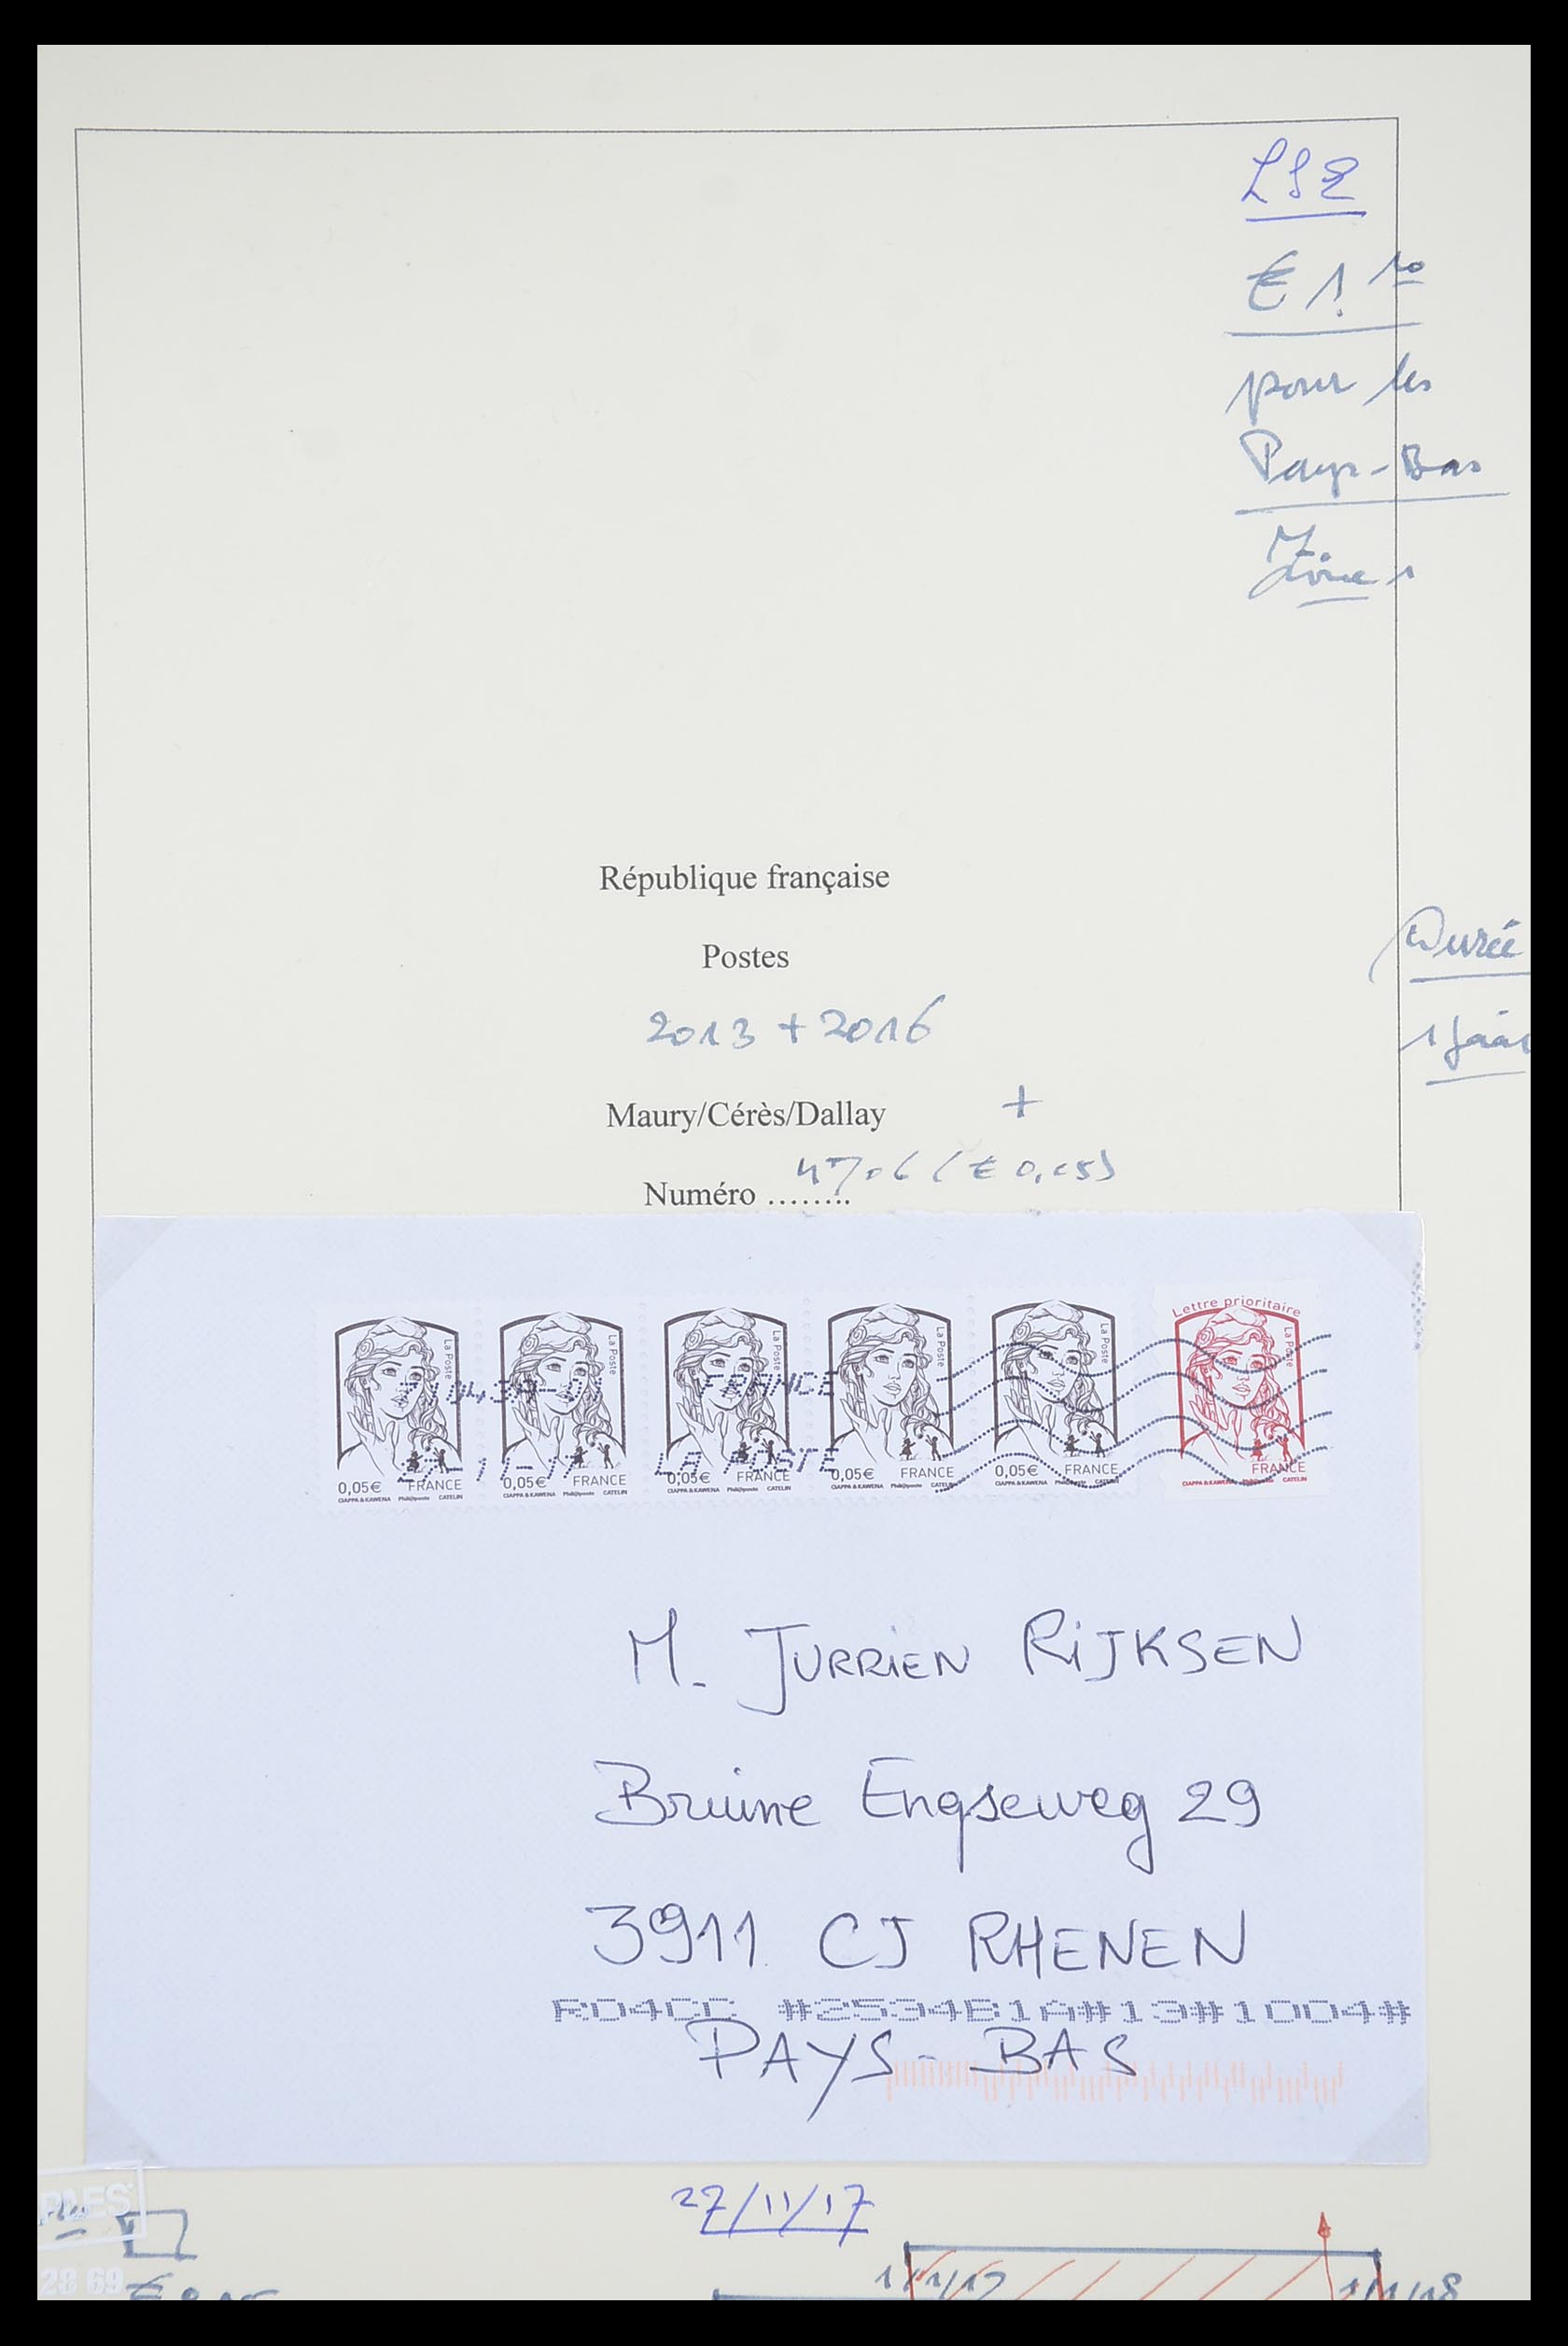 LSE
€ 1.10
pour les
Pays-Bas
Zone 1
République française
Postes
Durée
2013 + 2016
1 jaar
Maury/Cérès/Dallay +
4706 (€ 0,05)
Numéro ........
Lettre prioritaire
La Poste La Poste La Poste La Poste La Poste La Poste
FRANCE
LA POSTE
0,05€ FRANCE 0,05€ FRANCE 0,05€ FRANCE 0,05€ FRANCE 0,05€ FRANCE FRANCE
CIAPPA & KAWENA Phil@poste CATELIN CIAPPA & KAWENA Phil@poste CATELIN CIAPPA & KAWENA Phil@poste CATELIN CIAPPA & KAWENA Phil@poste CATELIN CIAPPA & KAWENA Phil@poste CATELIN CIAPPA & KAWENA Phil@poste CATELIN
M. JURRIEN RIJKSEN
Bruine Engseweg 29
3911 CJ RHENEN
R04CC #2534B1A#13#1004#
PAYS-BAS
27/11/17
1/1/17
1/1/18
28 69